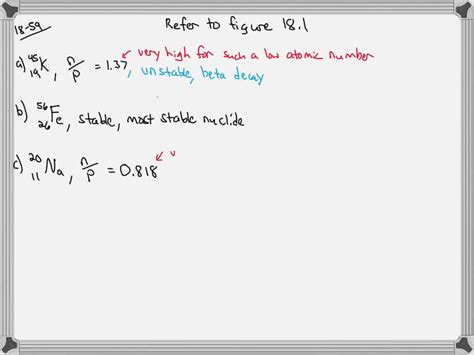 18-59
Refer to figure 18.1
a) ⁴⁵₁₉K, n/p = 1.37 ↙ very high for such a low atomic number
, unstable, beta decay
b) ⁵⁶₂₆Fe, stable, most stable nuclide
c) ²⁰₁₁Na, n/p = 0.818 ↙ v